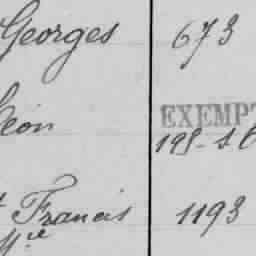 Georges 673
Léon EXEMPT
198-
Francis 1193